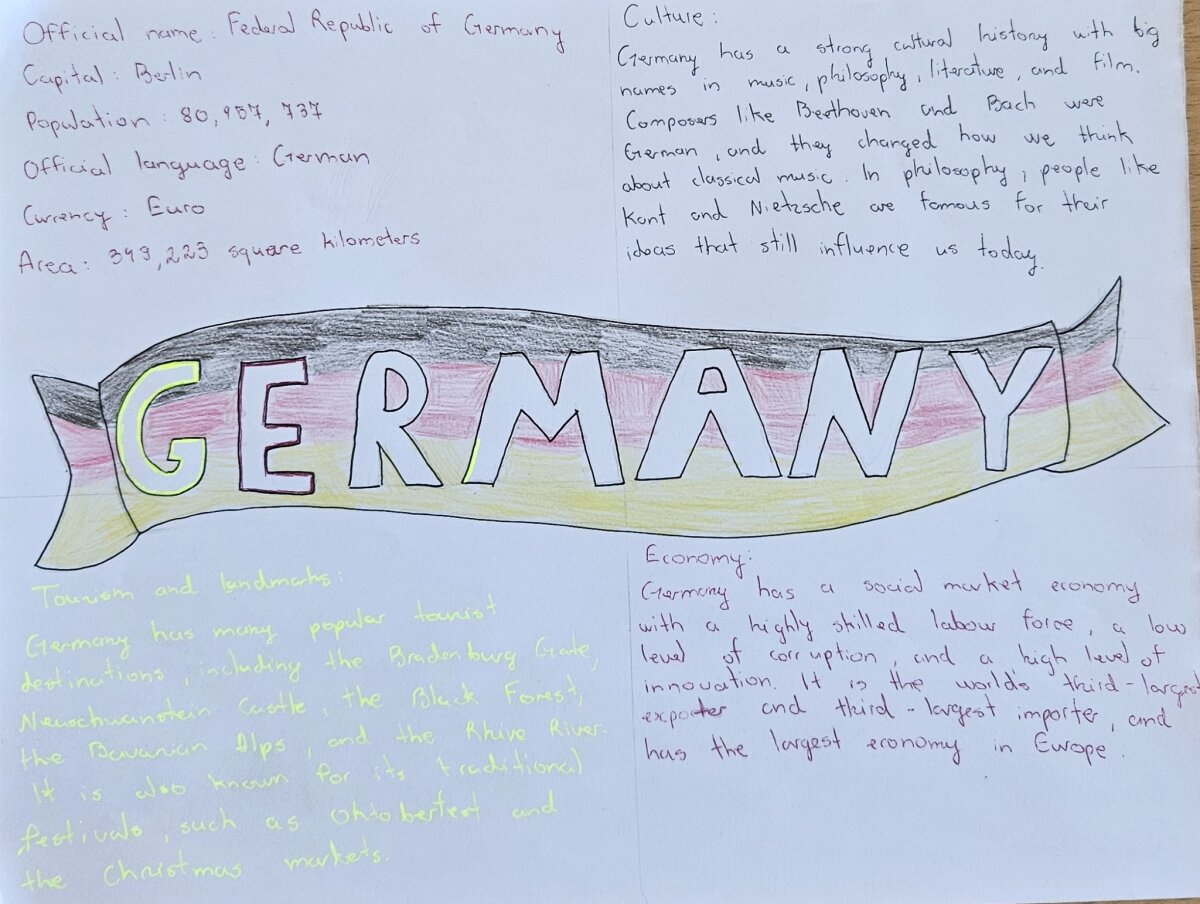 Official name: Federal Republic of Germany
Capital: Berlin
Population: 80,957,737
Official language: German
Currency: Euro
Area: 349,223 square kilometers
Culture:
Germany has a strong cultural history with big
names in music, philosophy, literature, and film.
Composers like Beethoven and Bach were
German, and they changed how we think
about classical music. In philosophy, people like
Kant and Nietzsche are famous for their
ideas that still influence us today.
GERMANY
Tourism and landmarks:
Germany has many popular tourist
destinations, including the Bradenburg Gate,
Neuschwanstein Castle, the Black Forest,
the Bavarian Alps, and the Rhine River.
It is also known for its traditional
festivals, such as Oktoberfest and
the Christmas markets.
Economy:
Germany has a social market economy
with a highly skilled labour force, a low
level of corruption, and a high level of
innovation. It is the world's third-largest
exporter and third-largest importer, and
has the largest economy in Europe.